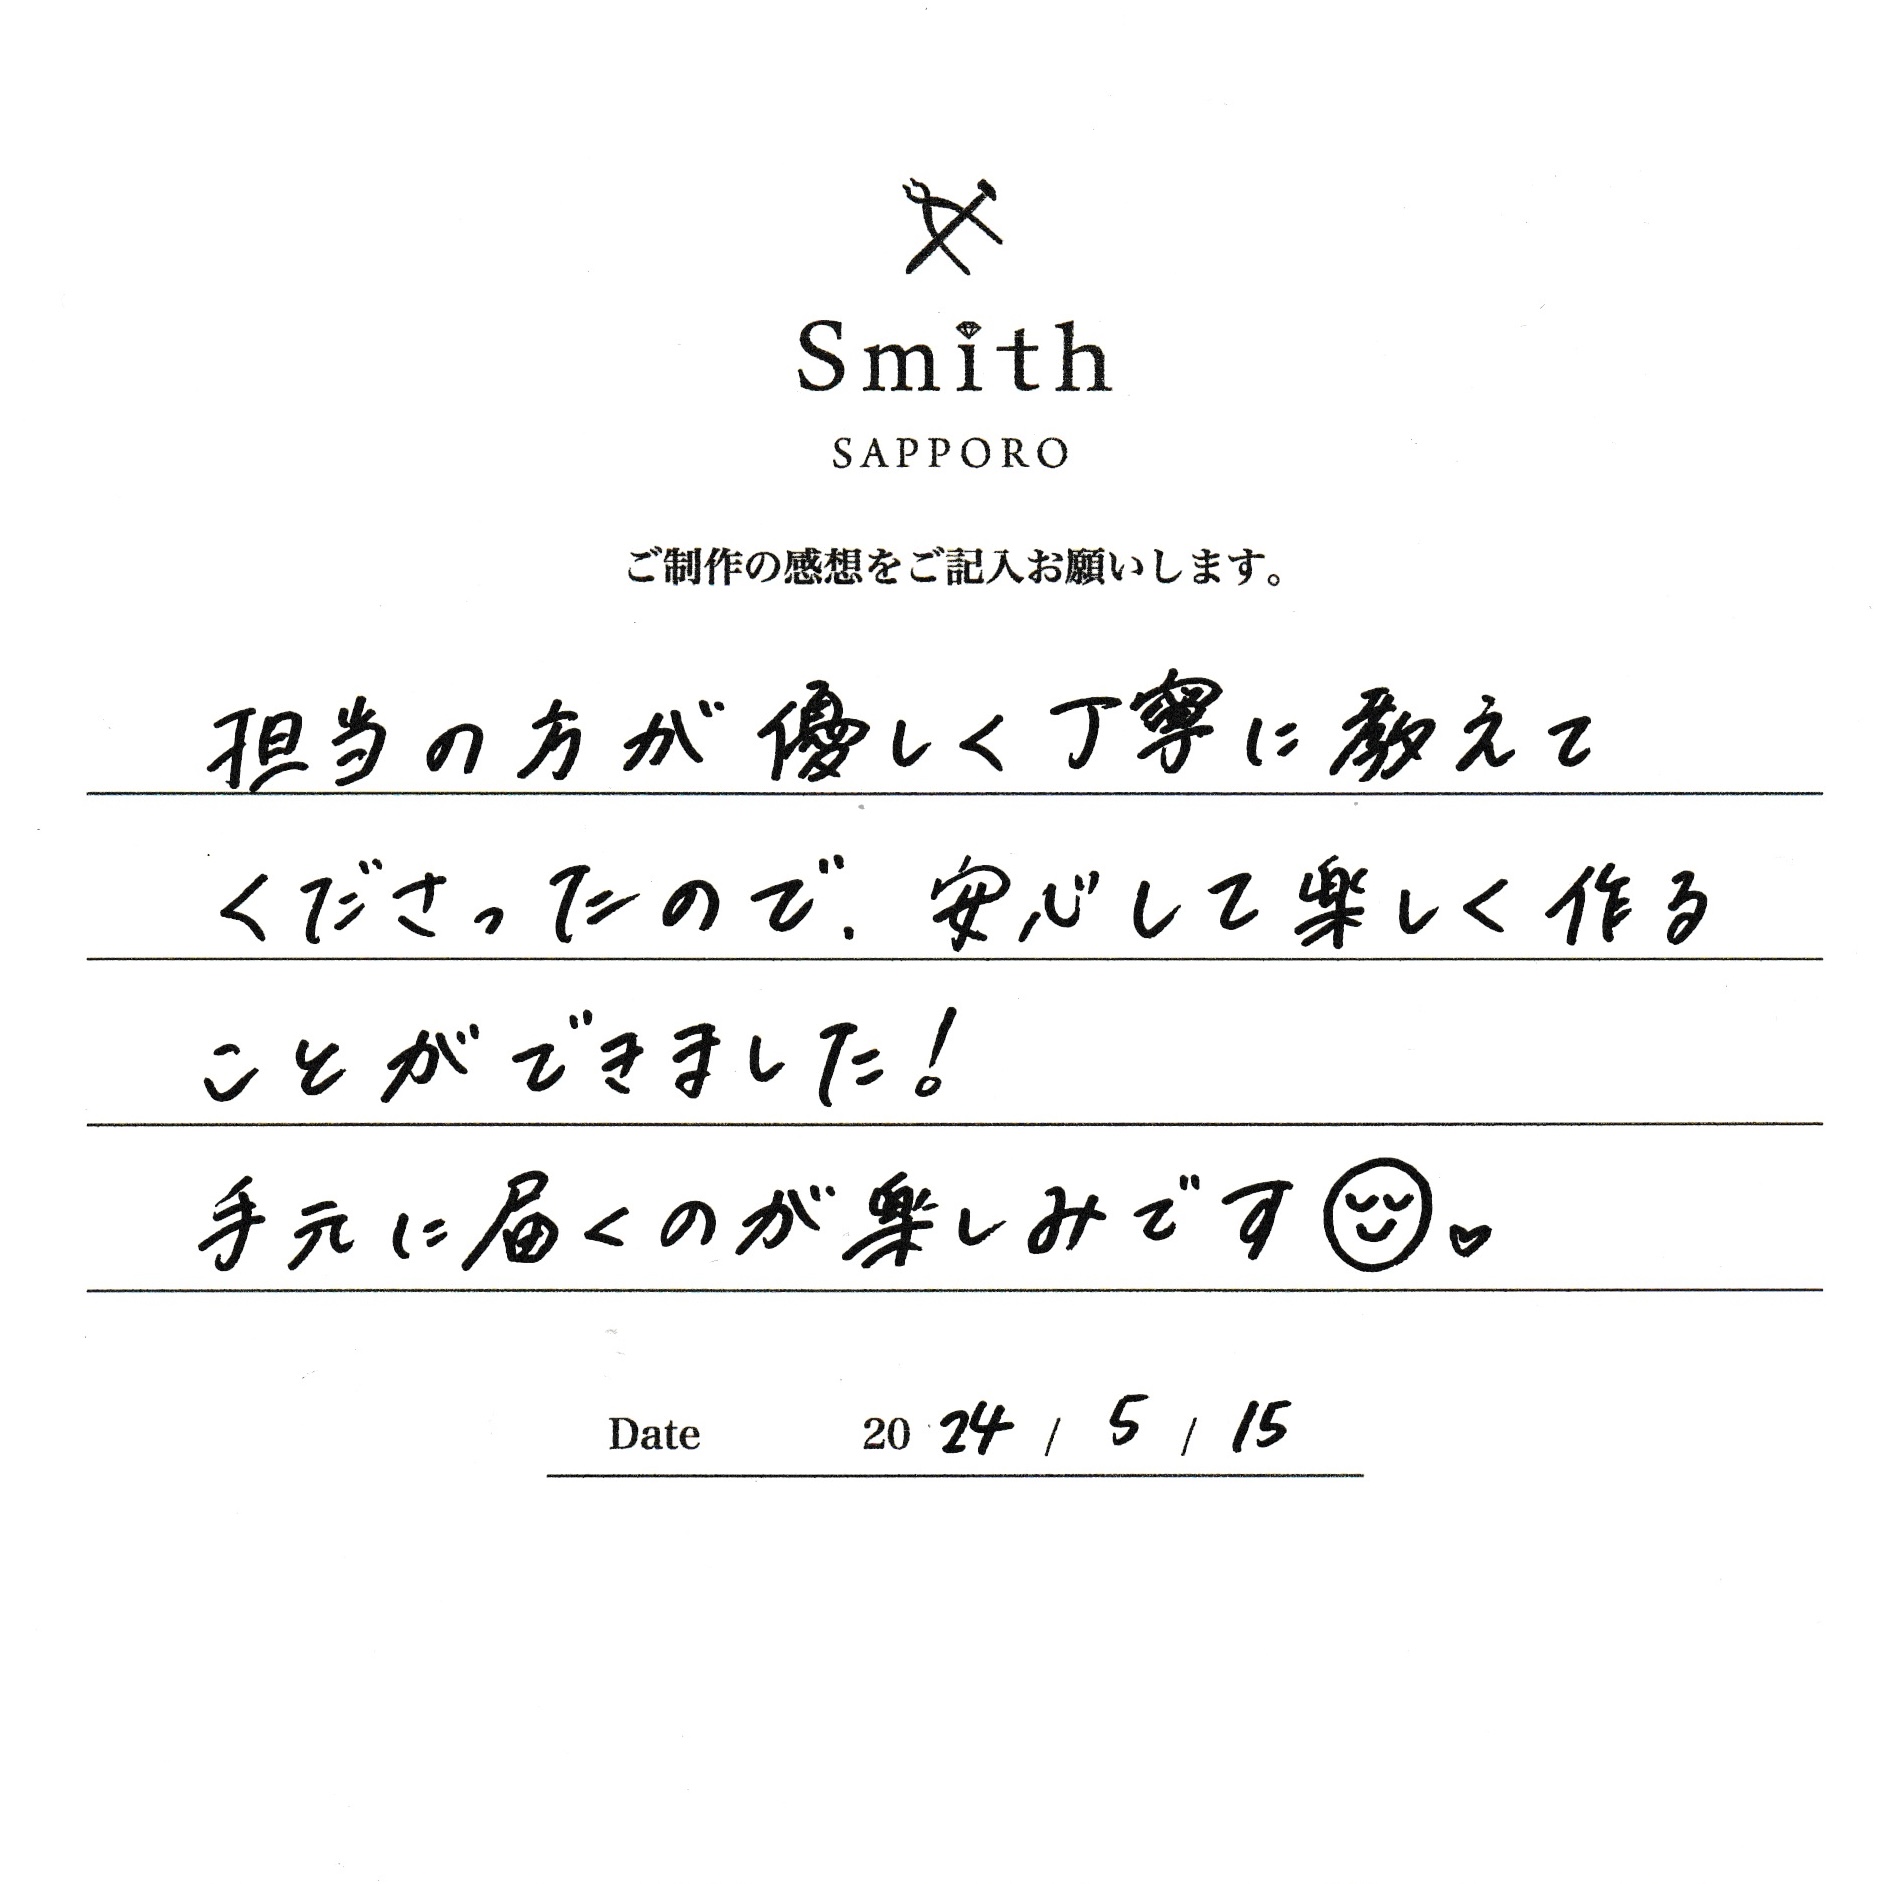 Smith
SAPPORO
ご制作の感想をご記入お願いします。
担当の方が優しく丁寧に教えて
くださったので、安心して楽しく作る
ことができました!
手元に届くのが楽しみです
Date 2024 / 5 / 15